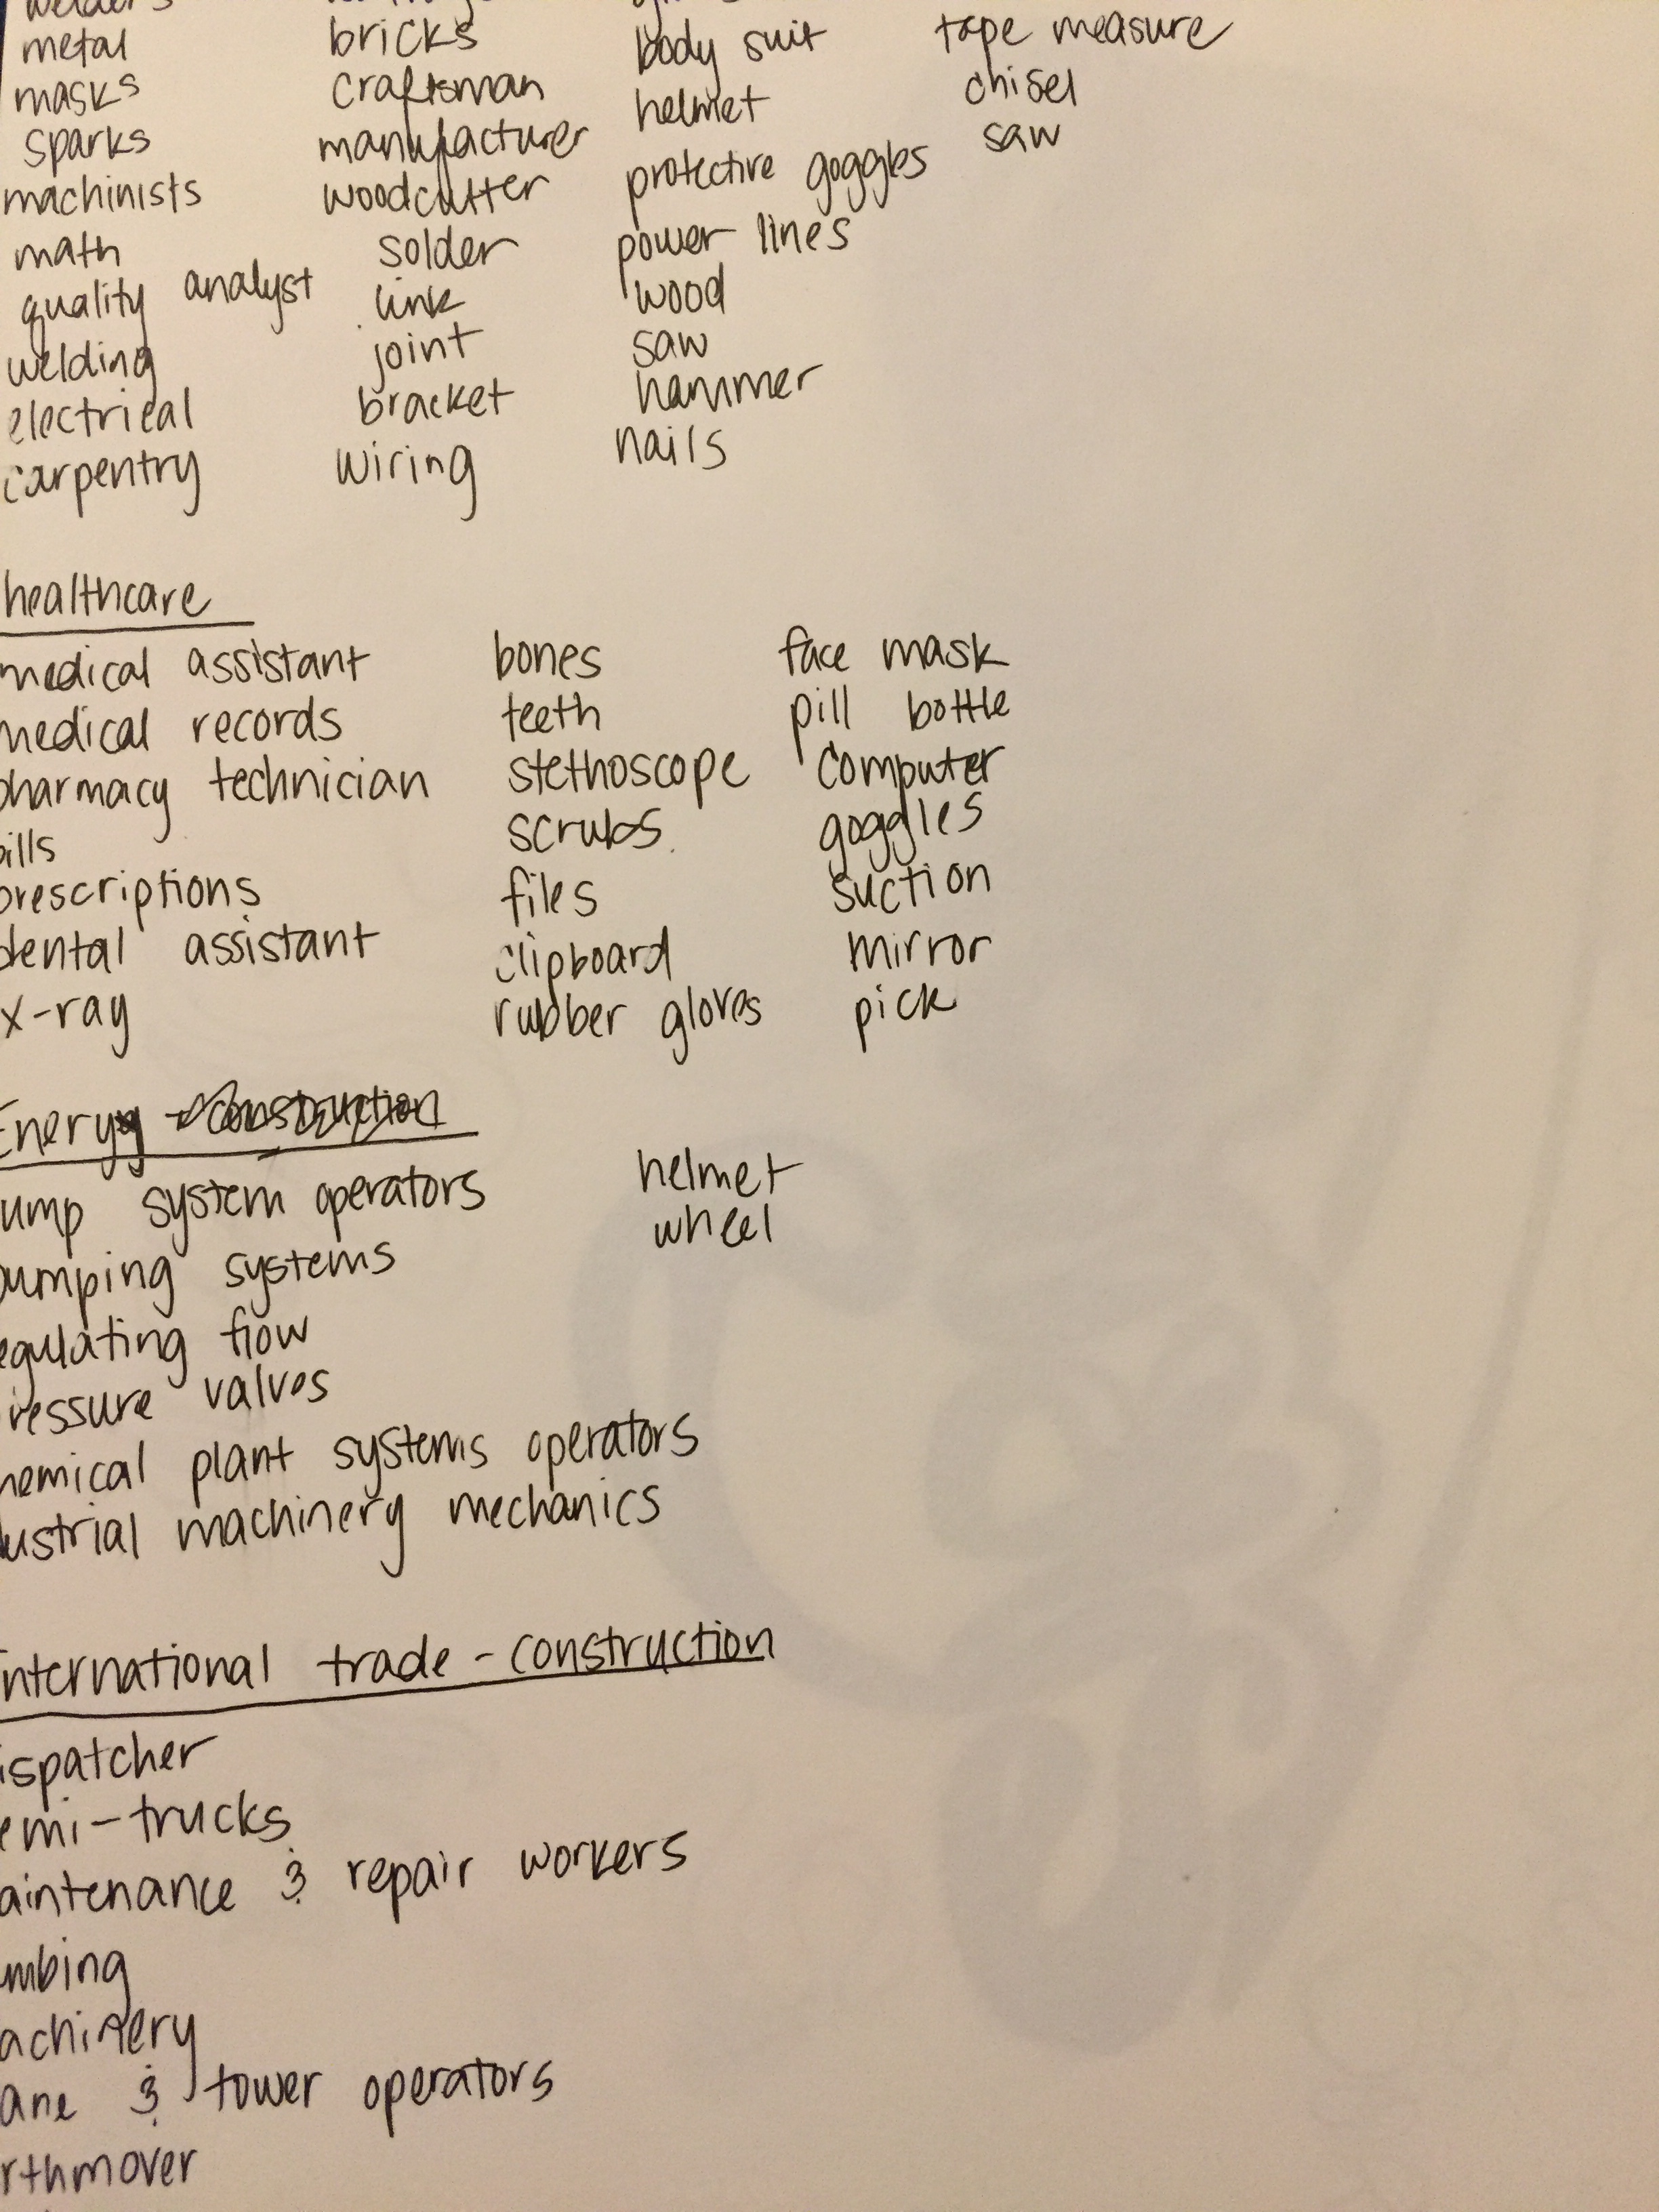 welders
metal
masks
sparks
machinists
math
quality analyst
welding
electrical
carpentry
bricks
craftsman
manufacturer
woodcutter
solder
link
joint
bracket
wiring
body suit
helmet
protective goggles
power lines
wood
saw
hammer
nails
tape measure
chisel
saw
healthcare
medical assistant
medical records
pharmacy technician
pills
prescriptions
dental assistant
x-ray
bones
teeth
stethoscope
scrubs
files
clipboard
rubber gloves
face mask
pill bottle
computer
goggles
suction
mirror
pick
Energy - construction
ump system operators
pumping systems
egulating flow
ressure valves
hemical plant systems operators
dustrial machinery mechanics
helmet
wheel
International trade - construction
ispatcher
emi-trucks
aintenance & repair workers
umbing
achinery
ane & tower operators
rthmover